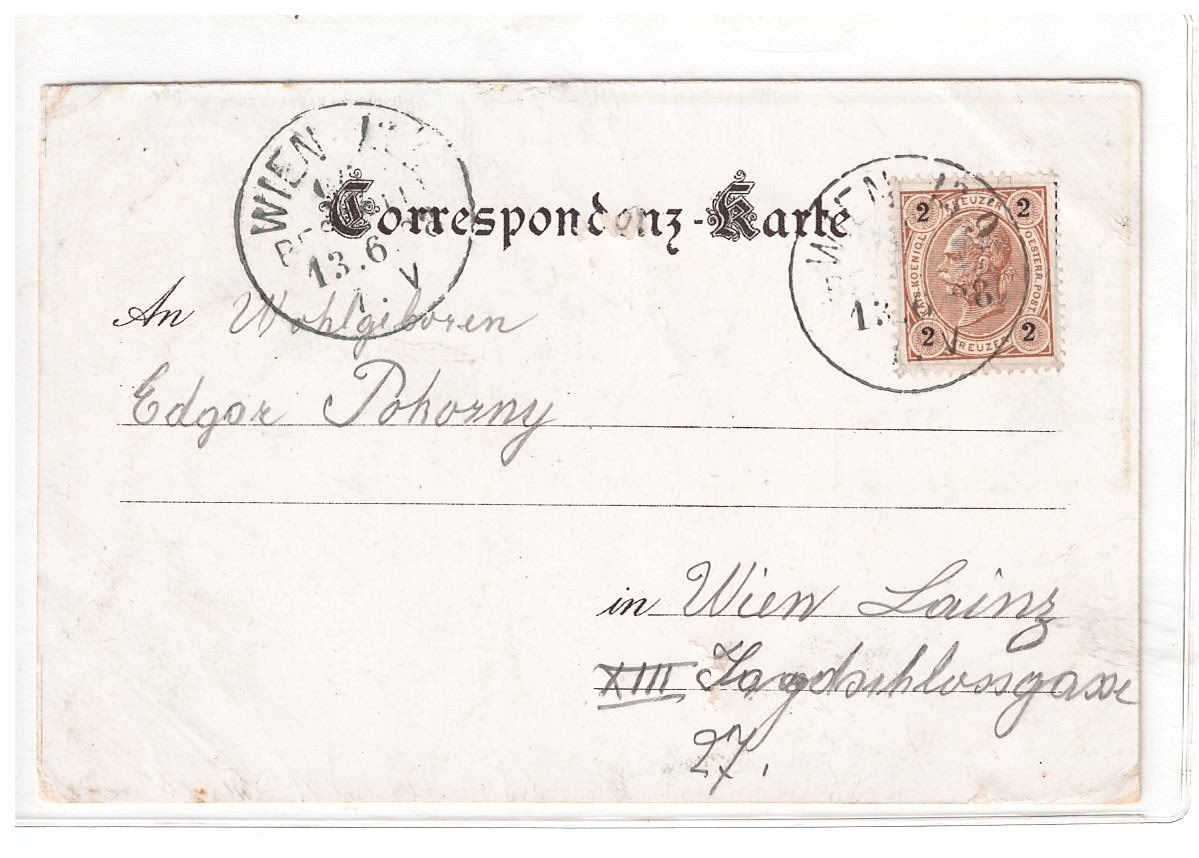 Correspondenz-Karte
WIEN
13.6
V
WIEN
13.6
98
V
2 KREUZER 2
KOENIGL.
OESTERR. POST
2 KREUZER 2
An Wohlgeboren
Edgar Pokorny
in Wien Lainz
XIII Jagdschlossgasse
27.